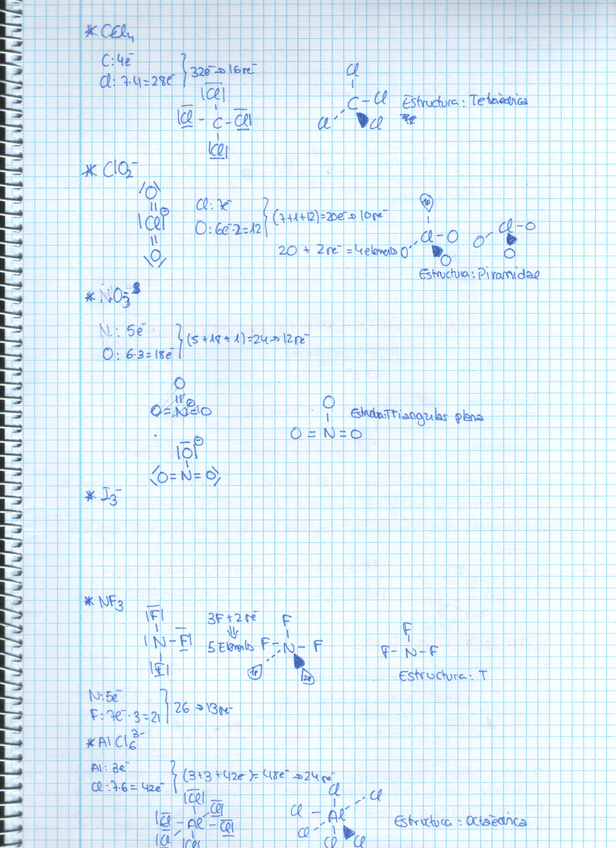 * CCl4
C: 4e⁻
Cl: 7·4 = 28e⁻ } 32e⁻ → 16 pe⁻
|Cl|
|Cl - C - Cl|
|Cl|
Cl
C - Cl
Cl Cl
Estructura: Tetraédrica
* ClO2⁻
O
|Cl|⊖
O
Cl: 7e⁻
O: 6e⁻·2 = 12 } (7+1+12) = 20e⁻ → 10 pe⁻
2O + 2 pe⁻ = 4 elementos
Cl - O
O
O Cl - O
O
Estructura: Piramidal
* NO3⁻
N: 5e⁻
O: 6·3 = 18e⁻ } (5+18+1) = 24 → 12 pe⁻
O
O = N = O
|O|⊖
O = N = O
O
O = N = O
Estructura: Triangular plana
* I3⁻
* NF3
|F|
|N - F|
|F|
3F + 2 pe⁻
⇓
5 Elementos
F
F - N - F
F
F - N - F
Estructura: T
N: 5e⁻
F: 7e⁻·3 = 21 } 26 → 13 pe⁻
* AlCl6³⁻
Al: 3e⁻
Cl: 7·6 = 42e⁻ } (3+3+42e⁻) = 48e⁻ → 24 pe⁻
|Cl| Cl
|Cl - Al - Cl|
Cl Cl
Cl - Al
Cl Cl Cl
Estructura: Octaédrica